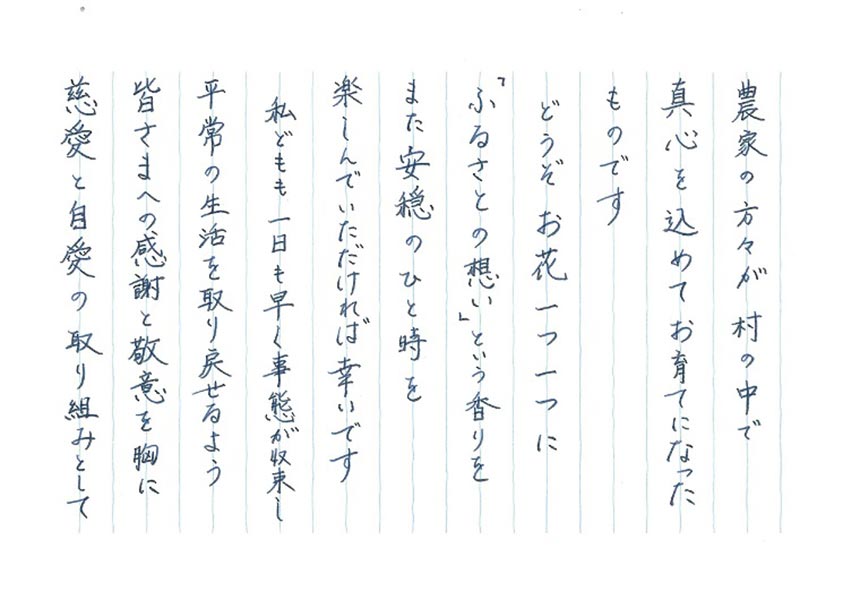 農家の方々が村の中で
真心を込めてお育てになった
ものです
どうぞお花一つ一つに
「ふるさとの想い」という香りを
また安穏のひと時を
楽しんでいただければ幸いです
私どもも一日も早く事態が収束し
平常の生活を取り戻せるよう
皆さまへの感謝と敬意を胸に
慈愛と自愛の取り組みとして